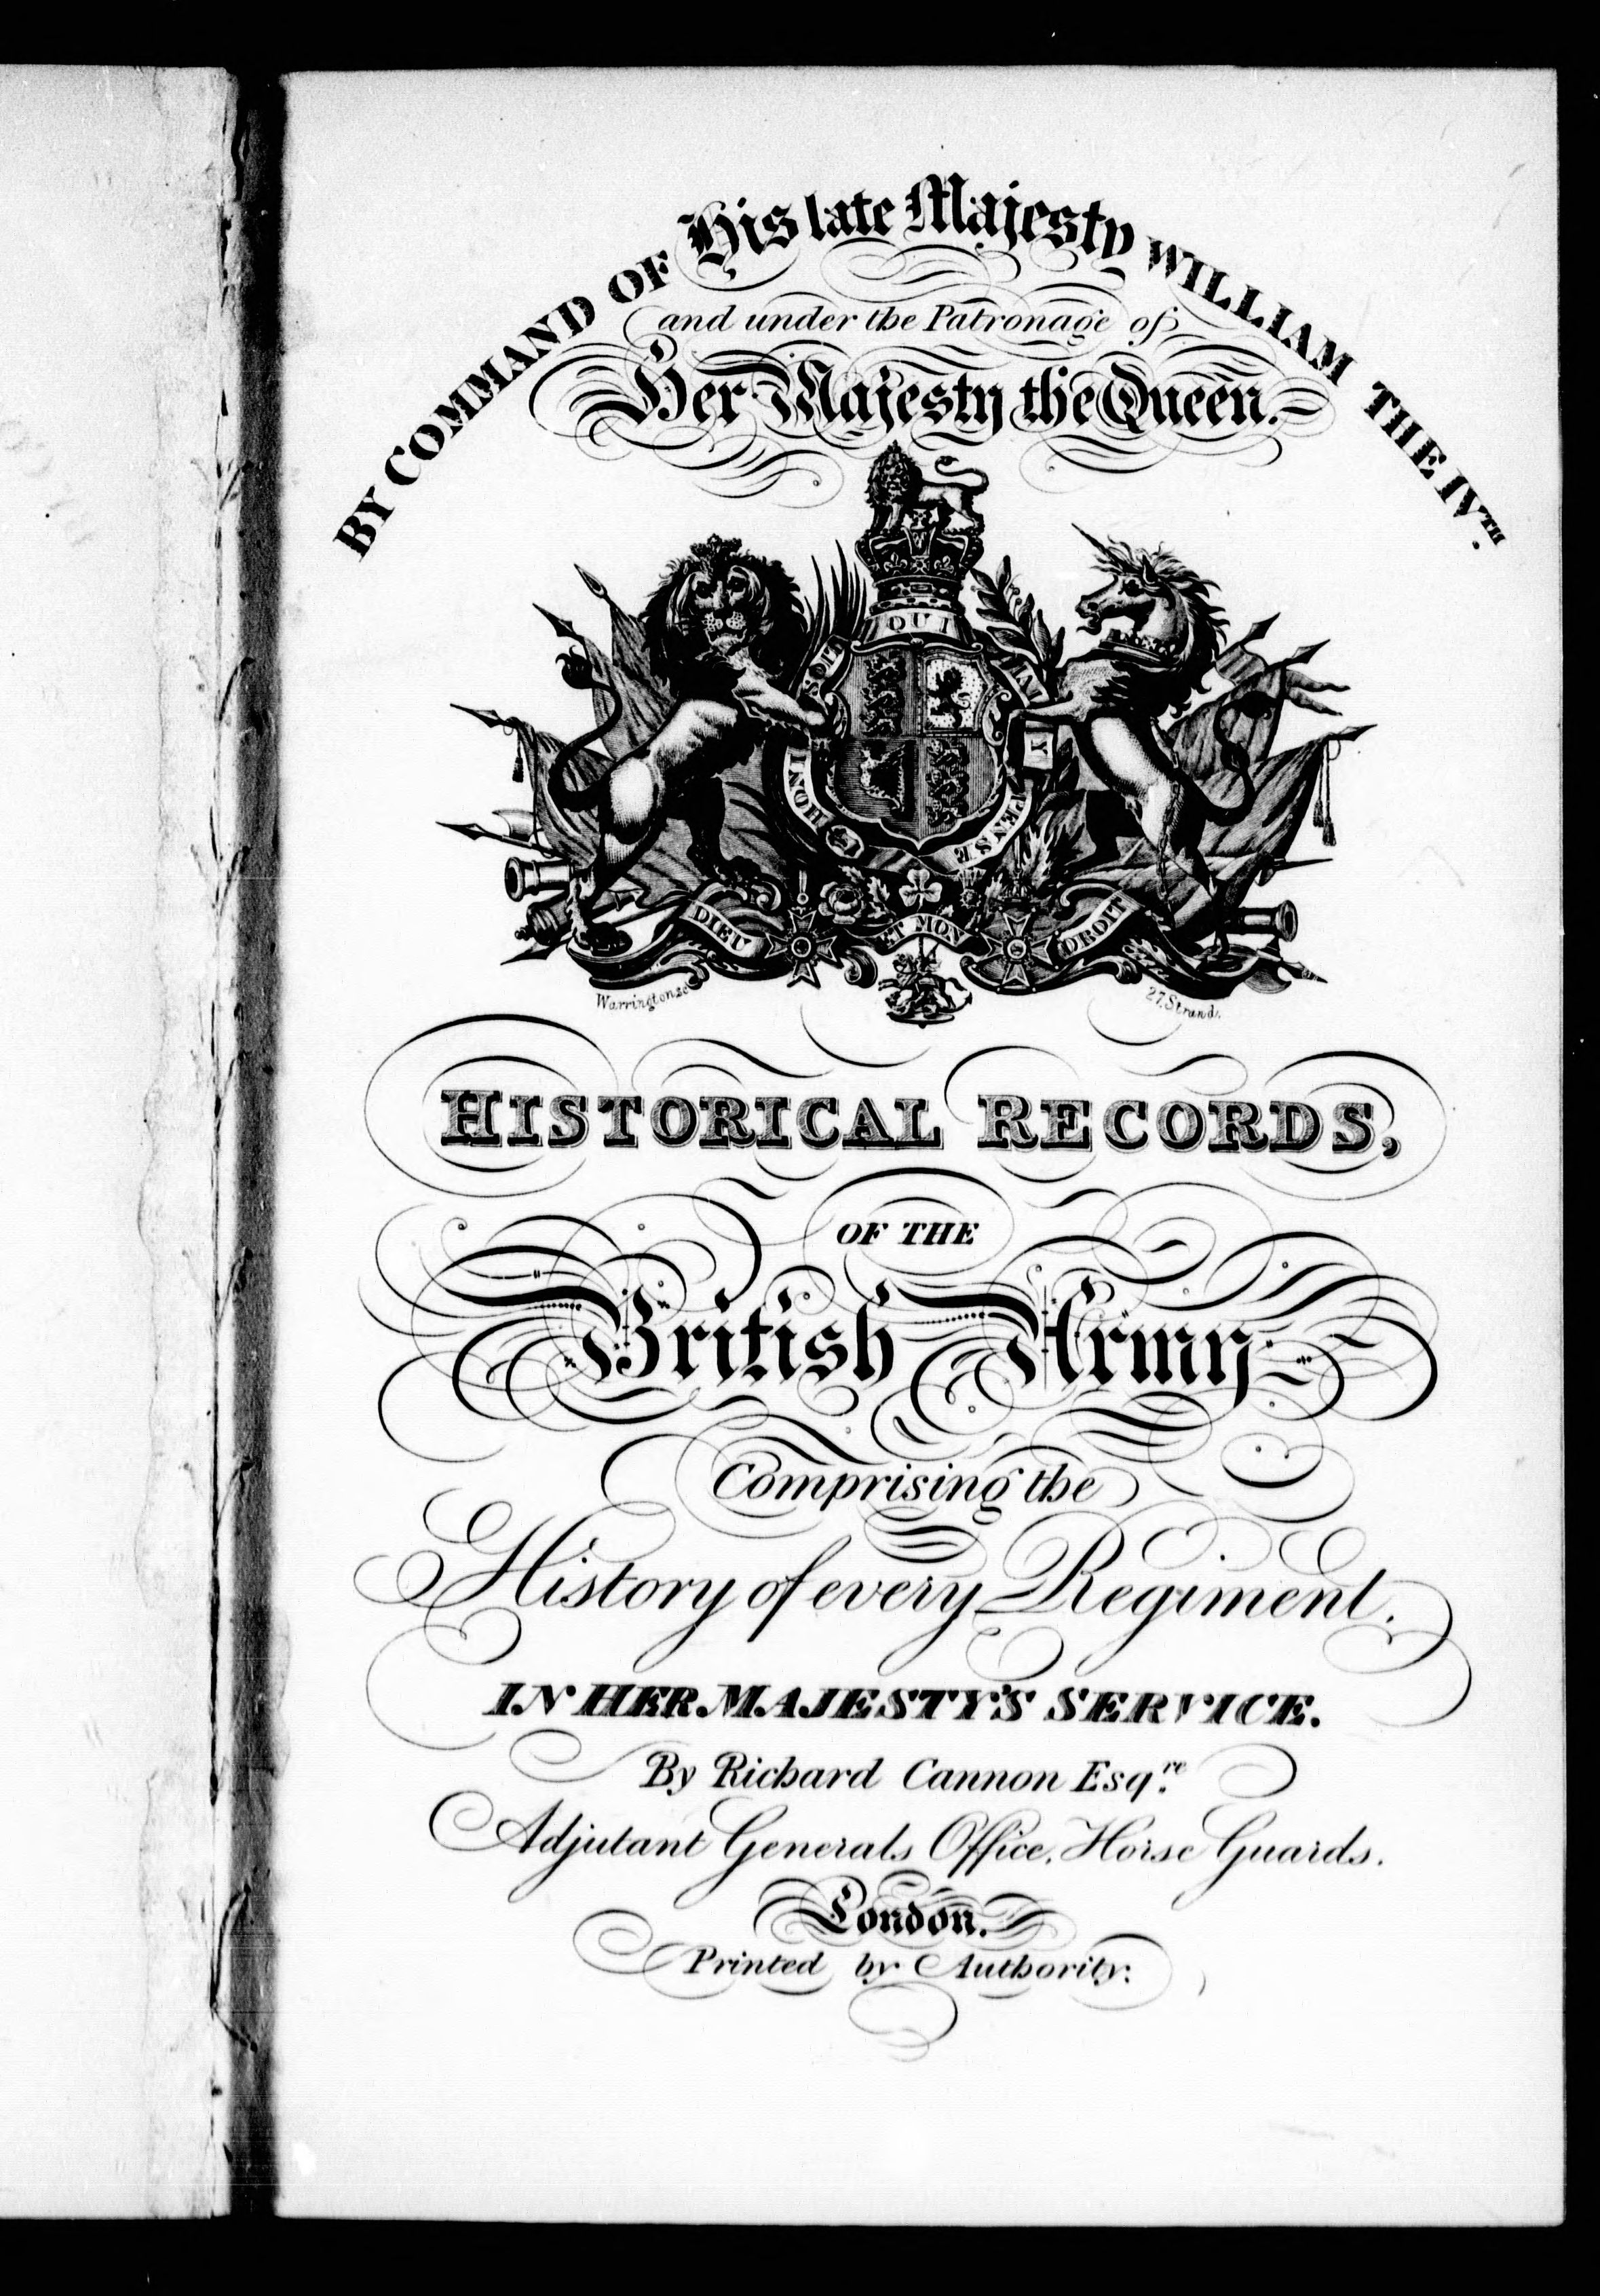 BY COMMAND OF His late Majesty WILLIAM THE IV.TH
and under the Patronage of
Her Majesty the Queen.
QUI
HONI SOIT
MAL Y
PENSE
DIEU ET MON DROIT
Warrington sc
27. Strand.
HISTORICAL RECORDS,
OF THE
British Army
Comprising the
History of every Regiment.
IN HER MAJESTY'S SERVICE.
By Richard Cannon Esq.re
Adjutant Generals Office, Horse Guards.
London.
Printed by Authority.